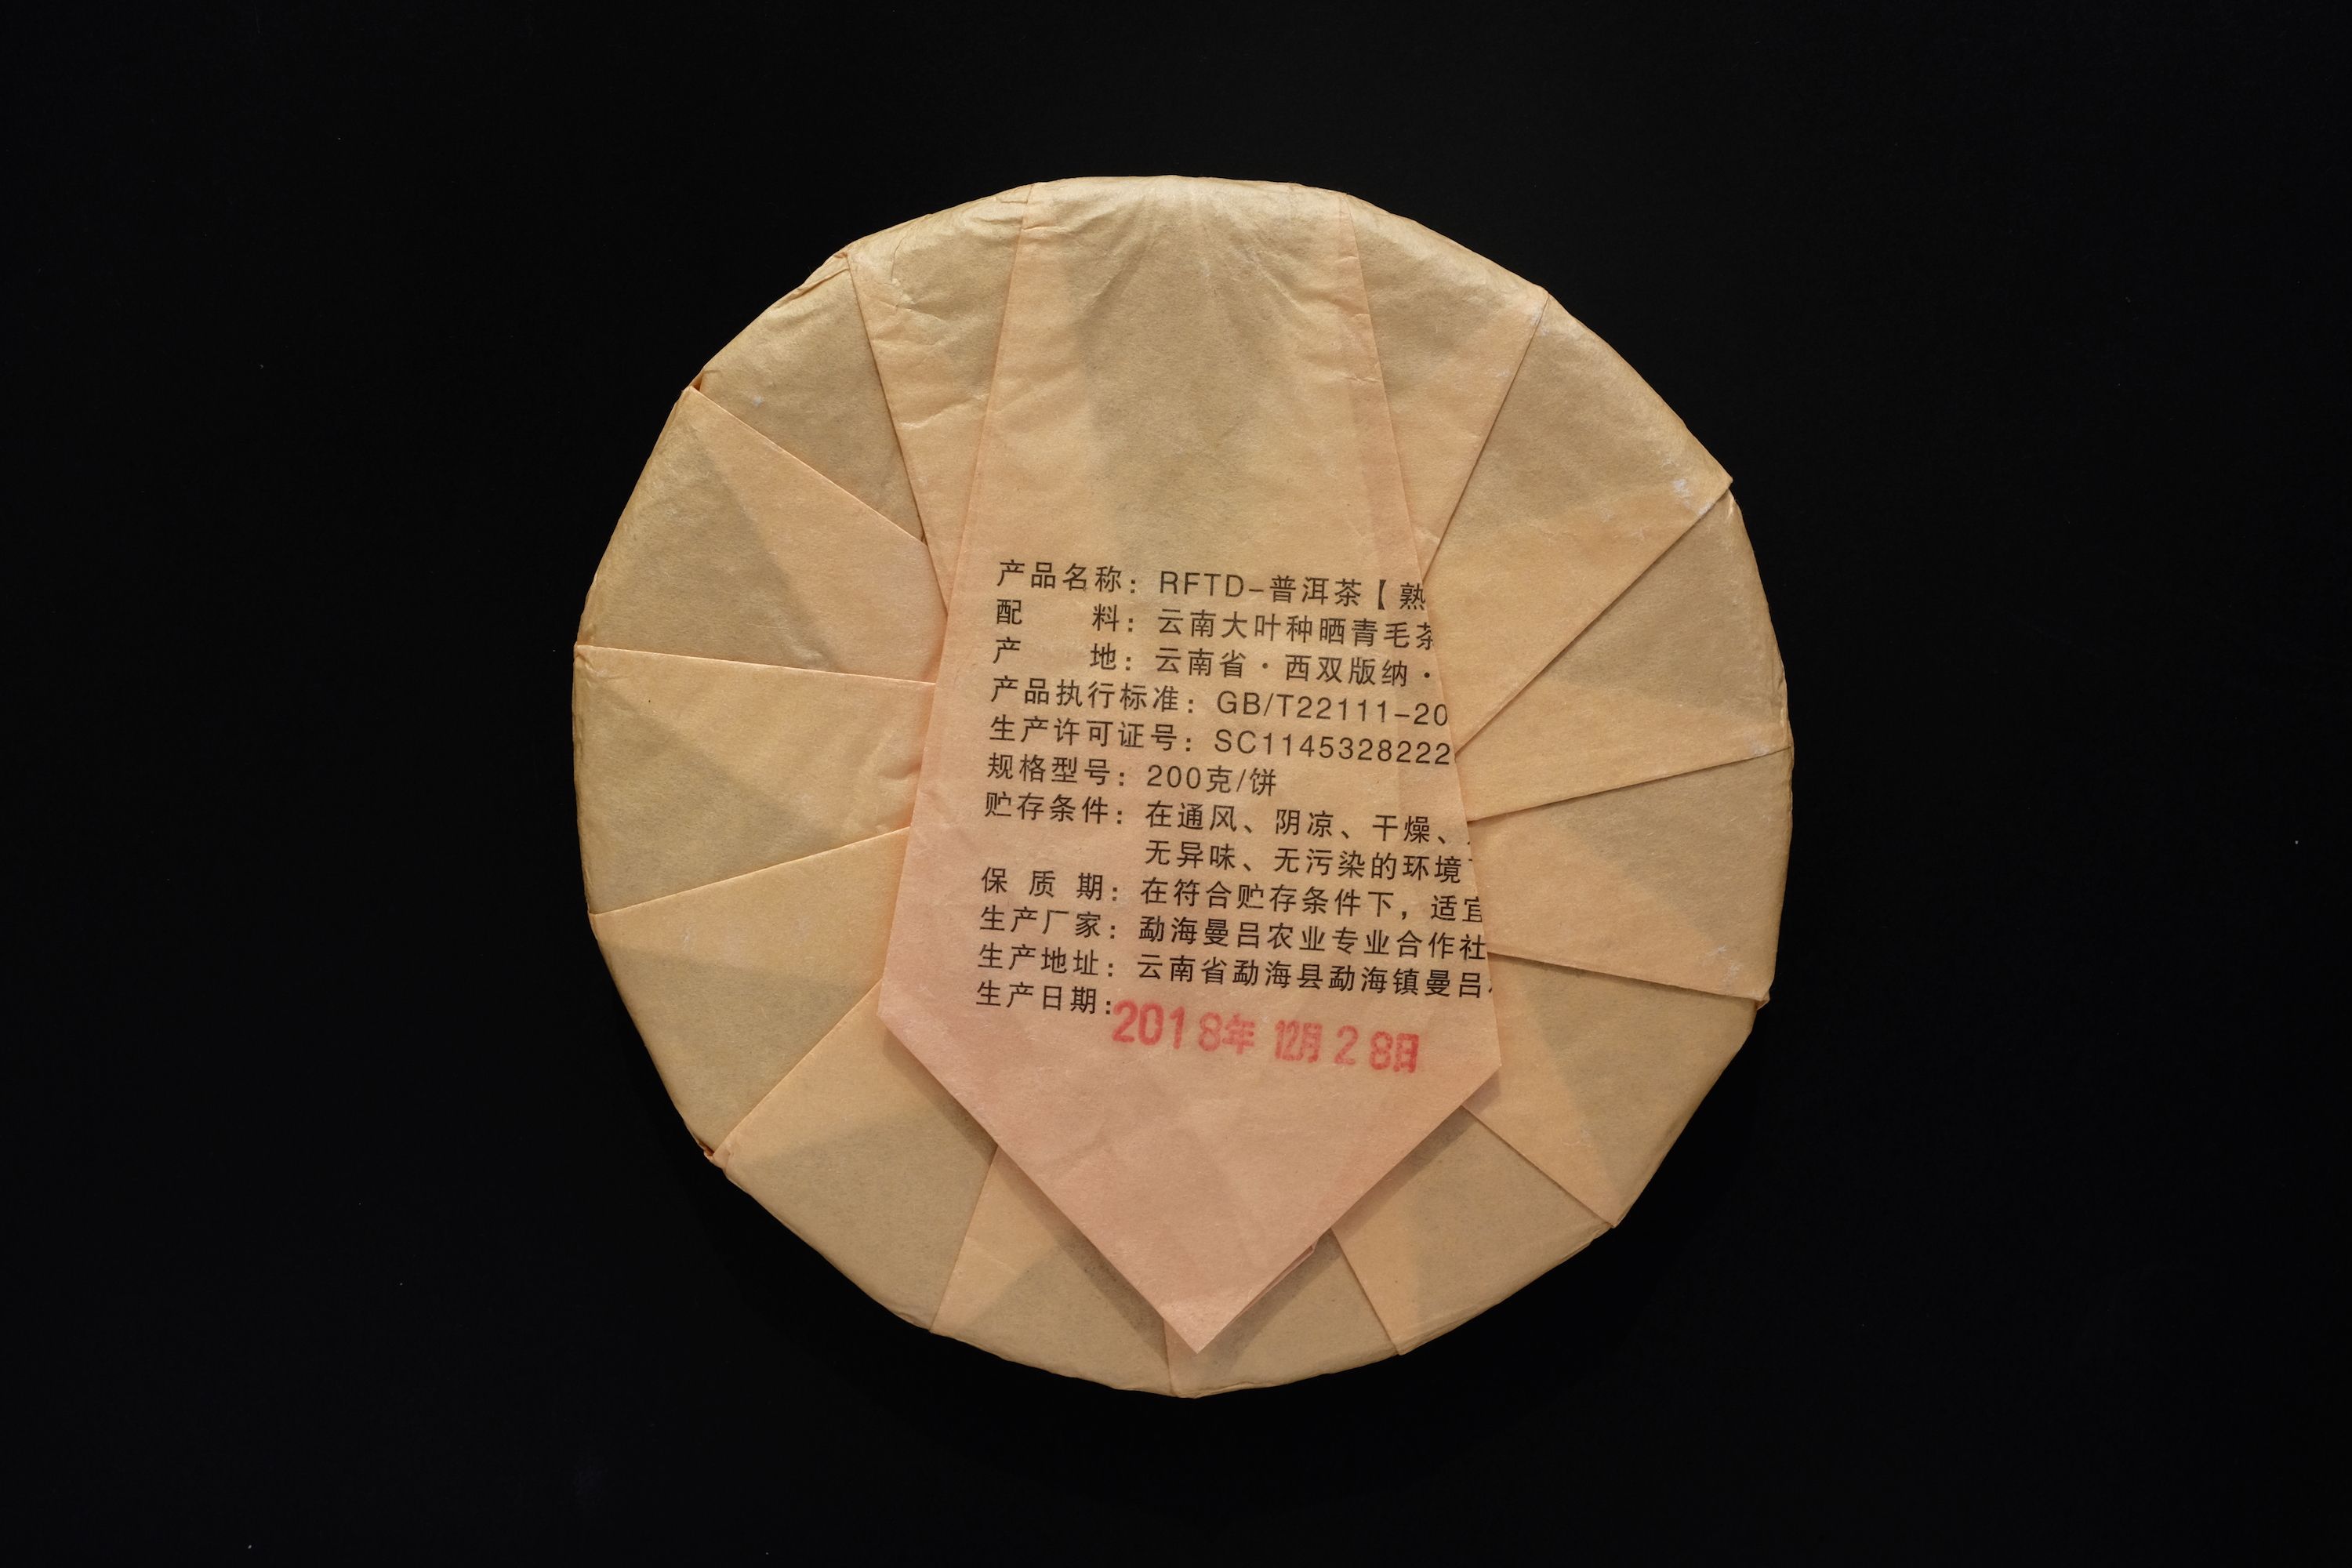 产品名称：RFTD-普洱茶【熟
配 料：云南大叶种晒青毛茶
产 地：云南省·西双版纳·
产品执行标准：GB/T22111-20
生产许可证号：SC1145328222
规格型号：200克/饼
贮存条件：在通风、阴凉、干燥、
无异味、无污染的环境
保 质 期：在符合贮存条件下，适宜
生产厂家：勐海曼吕农业专业合作社
生产地址：云南省勐海县勐海镇曼吕
生产日期：
2018年 12月 28日